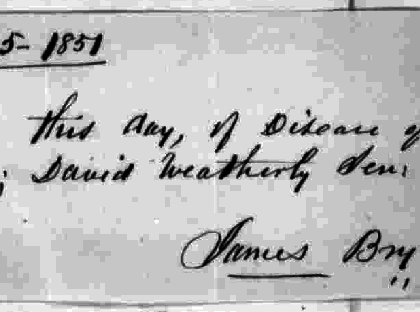 5- 1851
this day, of Disease
; David Weatherly Sen:
James Bry